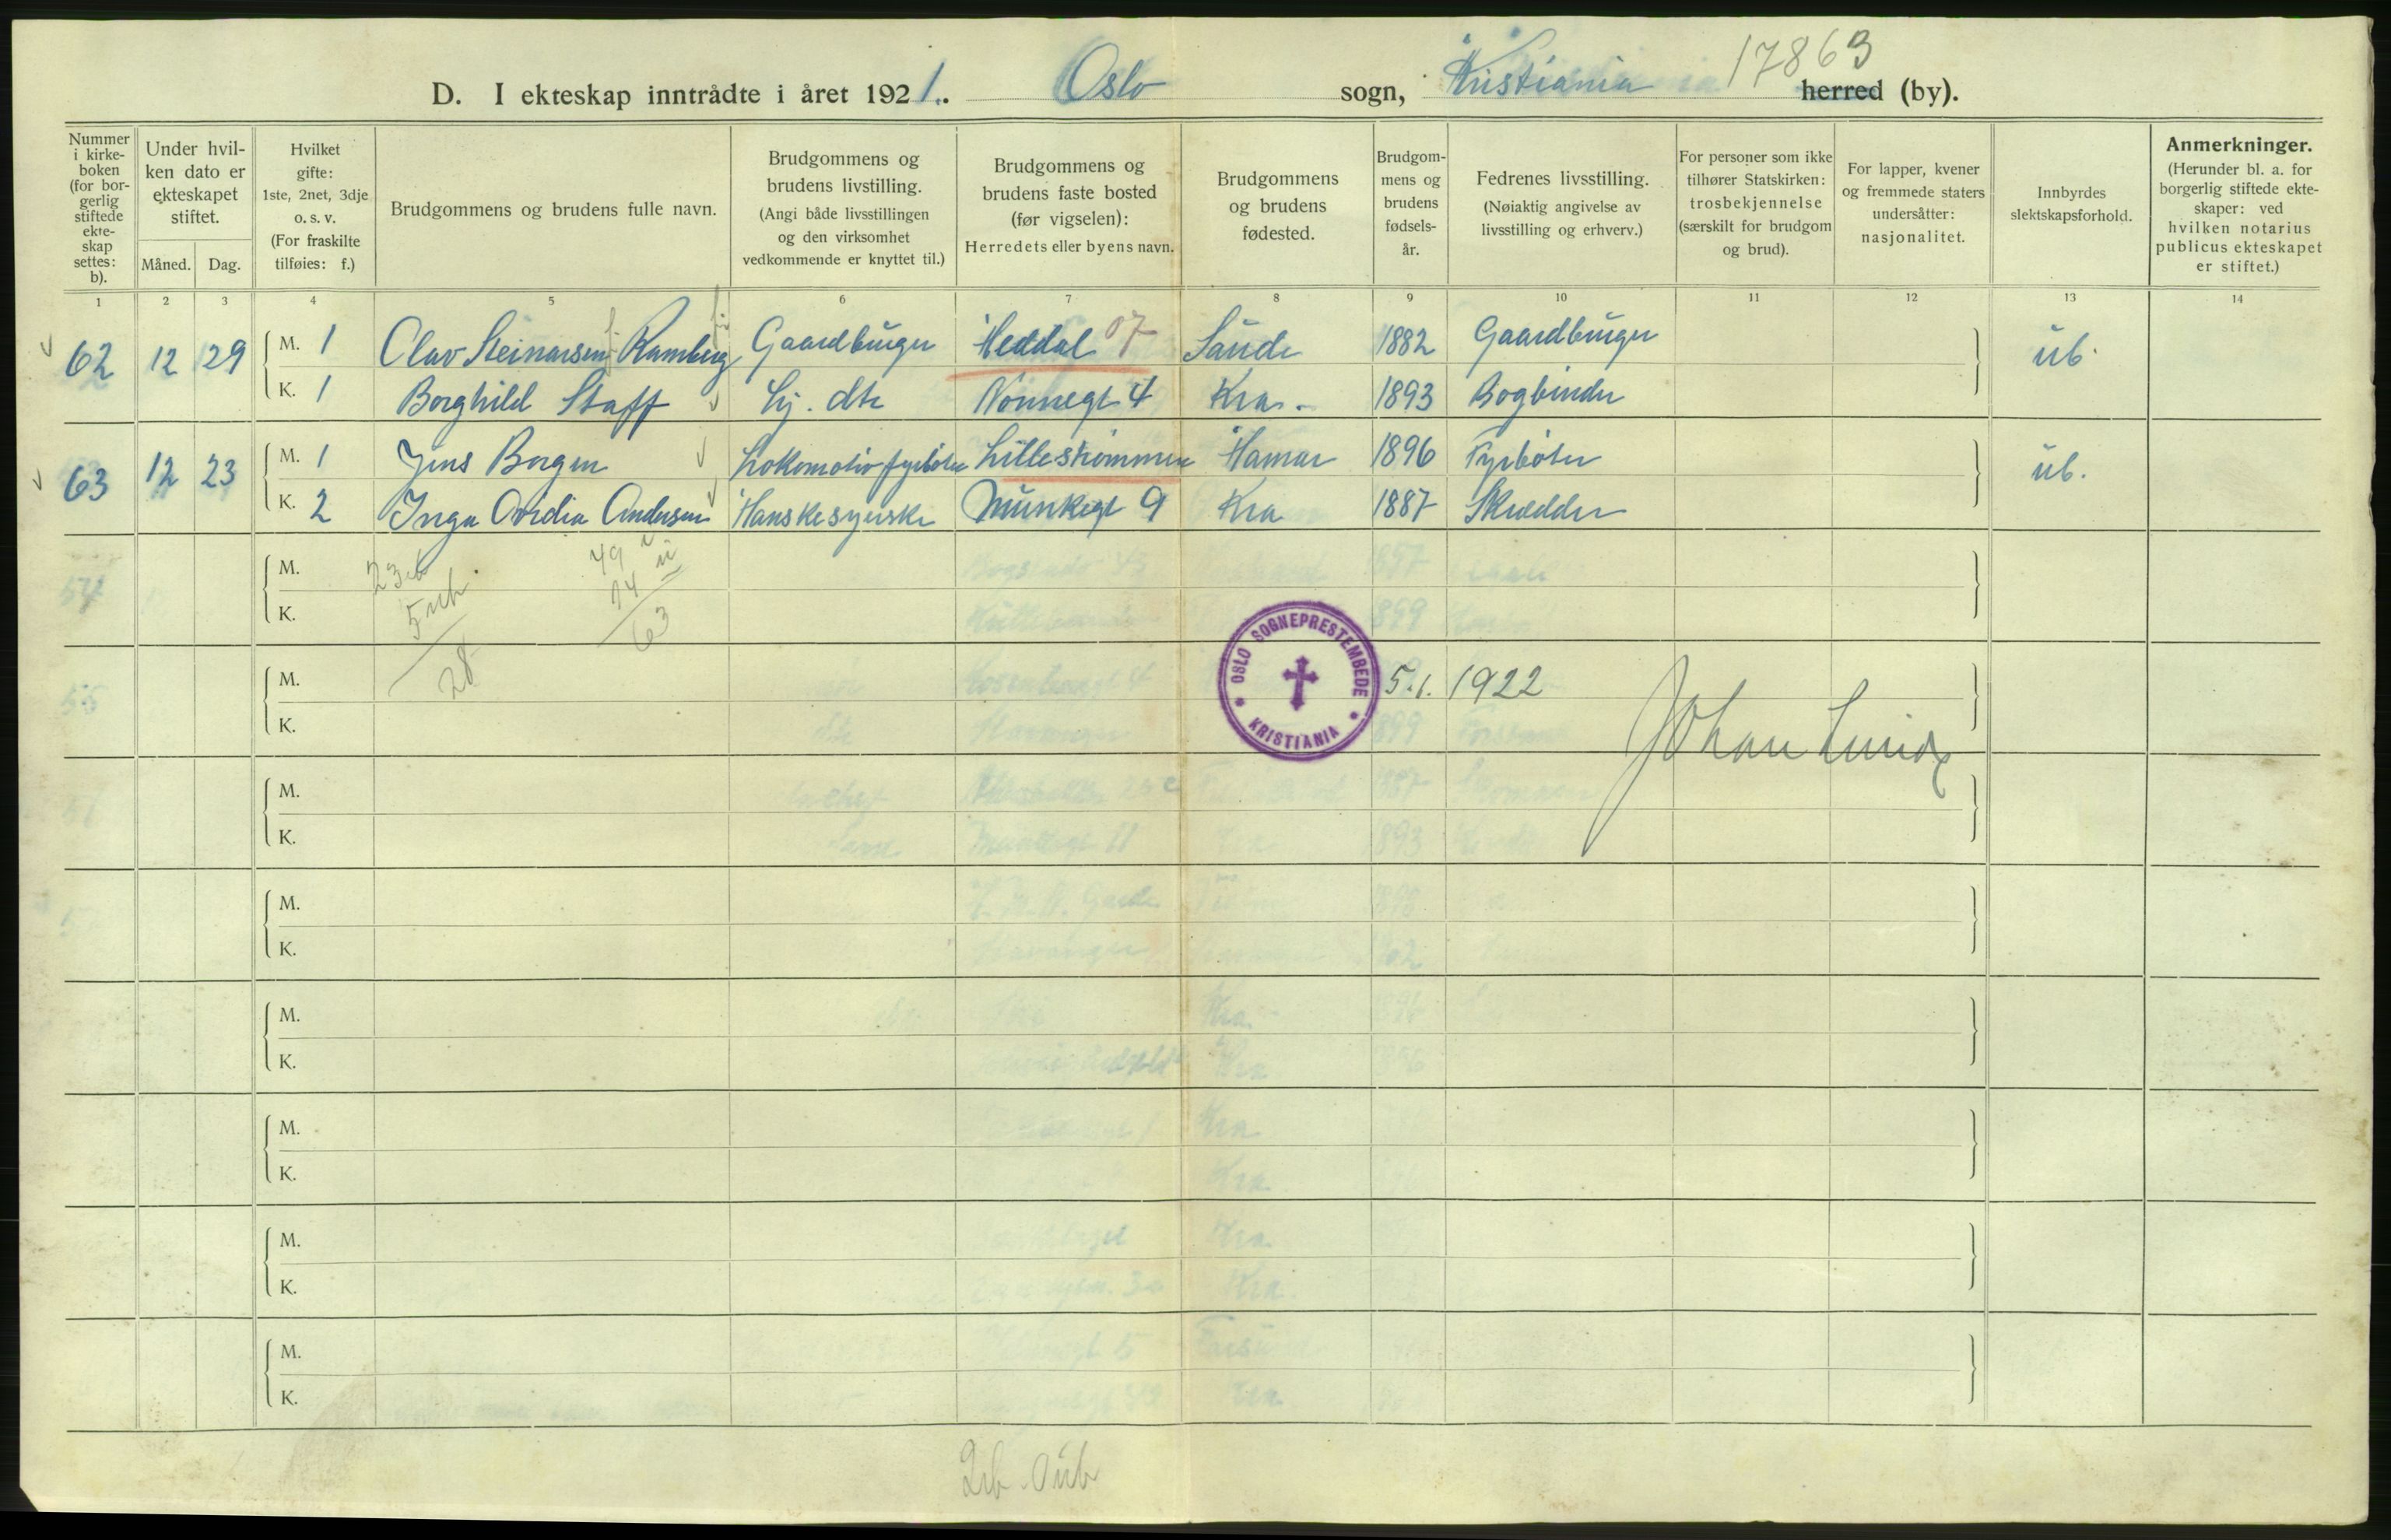 17863
D. I ekteskap inntrådte i året 1921. Oslo sogn, Kristiania herred (by).
Nummer i kirke-boken (for bor-gerlig stiftede ekte-skap settes: b).
Under hvil-ken dato er ekteskapet stiftet.
Måned. Dag.
Hvilket gifte: 1ste, 2net, 3dje o. s. v. (For fraskilte tilføies: f.)
Brudgommens og brudens fulle navn.
Brudgommens og brudens livstilling. (Angi både livsstillingen og den virksomhet vedkommende er knyttet til.)
Brudgommens og brudens faste bosted (før vigselen): Herredets eller byens navn.
Brudgommens og brudens fødested.
Brudgom-mens og brudens fødsels-år.
Fedrenes livsstilling. (Nøiaktig angivelse av livsstilling og erhverv.)
For personer som ikke tilhører Statskirken: trosbekjennelse (særskilt for brudgom og brud).
For lapper, kvener og fremmede staters undersåtter: nasjonalitet.
Innbyrdes slektskapsforhold.
Anmerkninger. (Herunder bl. a. for borgerlig stiftede ekte-skaper: ved hvilken notarius publicus ekteskapet er stiftet.)
1 2 3 4 5 6 7 8 9 10 11 12 13 14
62 12 29 M. 1 Olav Steinarsen Ramberg Gaardbruger Heddal 07 Saude 1882 Gaardbruger ub.
K. 1 Borghild Staff Hj. dtr Nonnegt 4 Kra. 1893 Bogbinder
63 12 23 M. 1 Jens Borgen Lokomotivfyrbøter Lillestrømmen Hamar 1896 Fyrbøter ub.
K. 2 Inga Ovidia Andersen Hanskesyerske Munkegt 9 Kra 1887 Skrædder
M.
K.
23 ub
5 uh
28
49 u
14 u
63
M.
K.
OSLO SOGNEPRESTEMBEDE KRISTIANIA
5.1. 1922
Johan Lunde
M.
K.
M.
K.
M.
K.
M.
K.
M.
K.
M.
K.
2ub